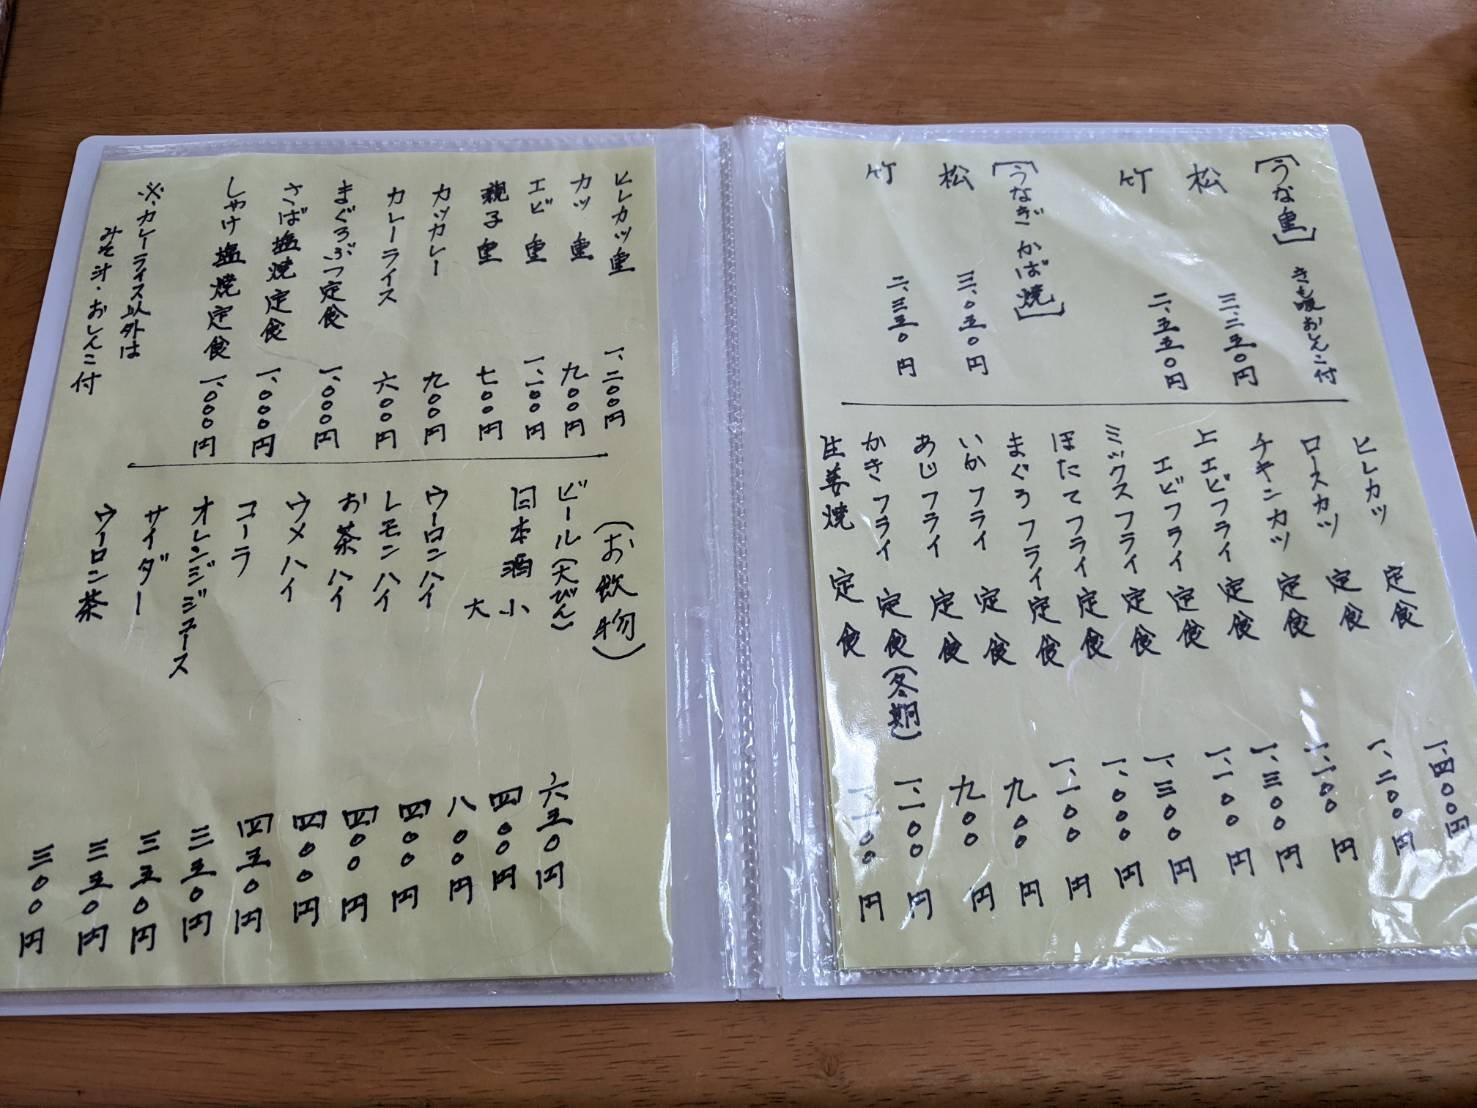 [うな重] きも吸おしんこ付
松 三、二五〇円
竹 二、五五〇円
[うなぎかば焼]
松 三、〇五〇円
竹 二、三五〇円
ヒレカツ定食 一、四〇〇円
ロースカツ定食 一、二〇〇円
チキンカツ定食 一、一〇〇円
上エビフライ定食 一、三〇〇円
エビフライ定食 一、一〇〇円
ミックスフライ定食 一、三〇〇円
ほたてフライ定食 一、〇〇〇円
まぐろフライ定食 一、一〇〇円
いかフライ定食 九〇〇円
あじフライ定食 九〇〇円
かきフライ定食(冬期) 一、一〇〇円
生姜焼定食 一、一〇〇円
ヒレカツ重 一、二〇〇円
カツ重 九〇〇円
エビ重 一、一〇〇円
親子重 七〇〇円
カツカレー 九〇〇円
カレーライス 六〇〇円
まぐろぶつ定食 一、〇〇〇円
さば塩焼定食 一、〇〇〇円
しゃけ塩焼定食 一、〇〇〇円
※カレーライス以外は
みそ汁・おしんこ付
(お飲物)
ビール(大びん) 六五〇円
日本酒 小 四〇〇円
大 八〇〇円
ウーロンハイ 四〇〇円
レモンハイ 四〇〇円
お茶ハイ 四〇〇円
ウメハイ 四五〇円
コーラ 三五〇円
オレンジジュース 三五〇円
サイダー 三五〇円
ウーロン茶 三〇〇円